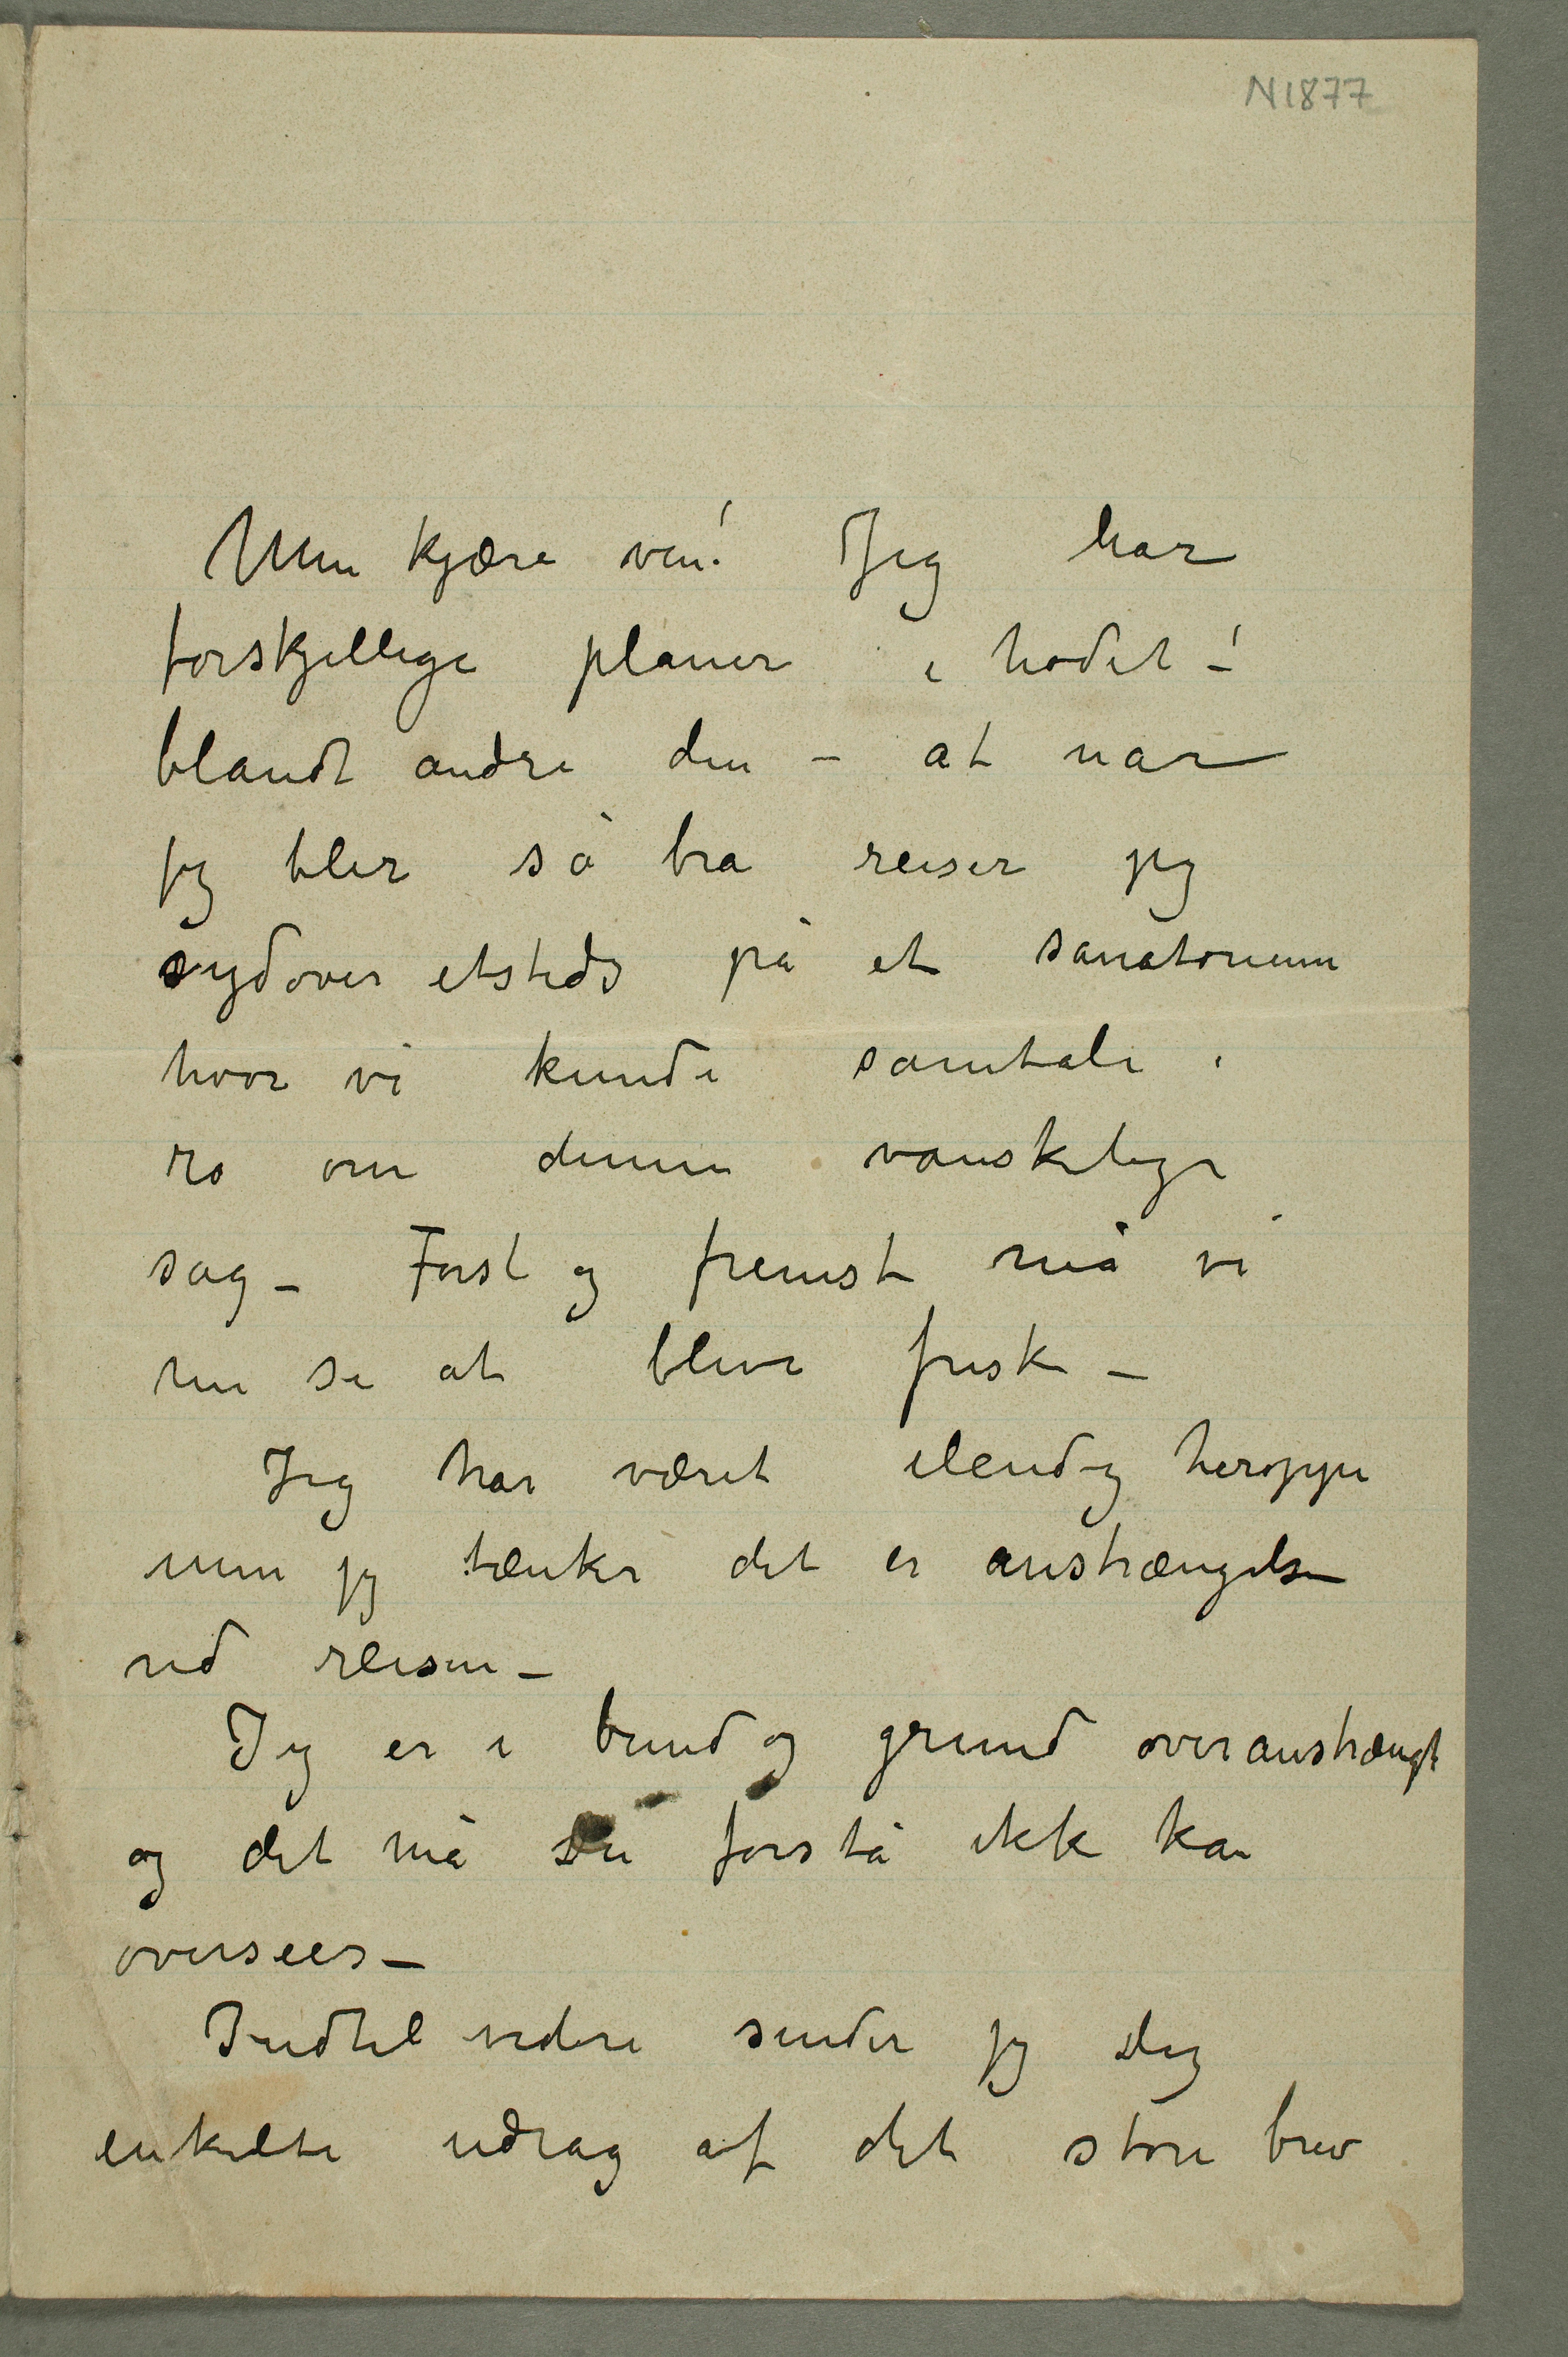 N1877
Min kjære ven! Jeg har
forskjellige planer i hodet –!
blandt andre den – at nar
jeg blir så bra reiser jeg
sydover etsteds på et sanatorium
hvor vi kunde samtale i
ro om denne vanskelige
sag – Først og fremst må vi
nu se at blive frisk –
Jeg har været elendig heroppe
men jeg tænker det er anstrængelsen
ved reisen –
Jeg er i bund og grund overanstrængt
og det må Du forstå ikke kan
oversees –
Indtil videre sender jeg Dig
enkelte udrag af det store brev